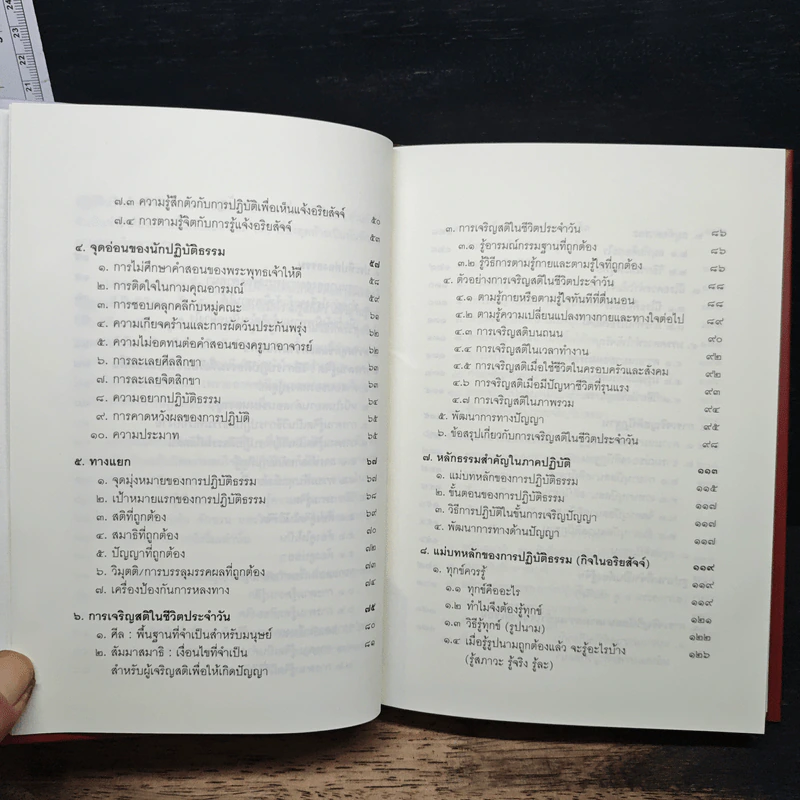 24
23
22
21
๗.๓ ความรู้สึกตัวกับการปฏิบัติเพื่อเห็นแจ้งอริยสัจจ์ ๕๐
๗.๔ การตามรู้จิตกับการรู้แจ้งอริยสัจจ์ ๕๓
๔. จุดอ่อนของนักปฏิบัติธรรม ๕๗
๑. การไม่ศึกษาคำสอนของพระพุทธเจ้าให้ดี ๕๘
๒. การติดใจในกามคุณอารมณ์ ๕๙
๓. การชอบคลุกคลีกับหมู่คณะ ๖๑
๔. ความเกียจคร้านและการผัดวันประกันพรุ่ง ๖๒
๕. ความไม่อดทนต่อคำสอนของครูบาอาจารย์ ๖๒
๖. การละเลยศีลสิกขา ๖๓
๗. การละเลยจิตสิกขา ๖๓
๘. ความอยากปฏิบัติธรรม ๖๔
๙. การคาดหวังผลของการปฏิบัติ ๖๕
๑๐. ความประมาท ๖๕
๕. ทางแยก ๖๗
๑. จุดมุ่งหมายของการปฏิบัติธรรม ๖๗
๒. เป้าหมายแรกของการปฏิบัติธรรม ๖๘
๓. สติที่ถูกต้อง ๖๙
๔. สมาธิที่ถูกต้อง ๗๐
๕. ปัญญาที่ถูกต้อง ๗๒
๖. วิมุตติ/การบรรลุมรรคผลที่ถูกต้อง ๗๓
๗. เครื่องป้องกันการหลงทาง ๗๔
๖. การเจริญสติในชีวิตประจำวัน ๗๕
๑. ศีล : พื้นฐานที่จำเป็นสำหรับมนุษย์ ๘๐
๒. สัมมาสมาธิ : เงื่อนไขที่จำเป็น ๘๑
สำหรับผู้เจริญสติเพื่อให้เกิดปัญญา
๓. การเจริญสติในชีวิตประจำวัน ๘๖
๓.๑ รู้อารมณ์กรรมฐานที่ถูกต้อง ๘๖
๓.๒ รู้วิธีการตามรู้กายและตามรู้ใจที่ถูกต้อง ๘๖
๔. ตัวอย่างการเจริญสติในชีวิตประจำวัน ๘๘
๔.๑ ตามรู้กายหรือตามรู้ใจทันทีที่ตื่นนอน ๘๘
๔.๒ ตามรู้ความเปลี่ยนแปลงทางกายและทางใจต่อไป ๘๙
๔.๓ การเจริญสติบนถนน ๙๐
๔.๔ การเจริญสติในเวลาทำงาน ๙๒
๔.๕ การเจริญสติเมื่อใช้ชีวิตในครอบครัวและสังคม ๙๒
๔.๖ การเจริญสติเมื่อมีปัญหาชีวิตที่รุนแรง ๙๔
๔.๗ การเจริญสติในภาพรวม ๙๔
๕. พัฒนาการทางปัญญา ๙๕
๖. ข้อสรุปเกี่ยวกับการเจริญสติในชีวิตประจำวัน ๙๘
๗. หลักธรรมสำคัญในภาคปฏิบัติ ๑๑๓
๑. แม่บทหลักของการปฏิบัติธรรม ๑๑๕
๒. ขั้นตอนของการปฏิบัติธรรม ๑๑๗
๓. วิธีการปฏิบัติในขั้นการเจริญปัญญา ๑๑๗
๔. พัฒนาการทางด้านปัญญา ๑๑๗
๘. แม่บทหลักของการปฏิบัติธรรม (กิจในอริยสัจจ์) ๑๑๙
๑. ทุกข์ควรรู้ ๑๑๙
๑.๑ ทุกข์คืออะไร ๑๑๙
๑.๒ ทำไมจึงต้องรู้ทุกข์ ๑๒๑
๑.๓ วิธีรู้ทุกข์ (รูปนาม) ๑๒๒
๑.๔ เมื่อรู้รูปนามถูกต้องแล้ว จะรู้อะไรบ้าง ๑๒๖
(รู้สภาวะ รู้จริง รู้ละ)